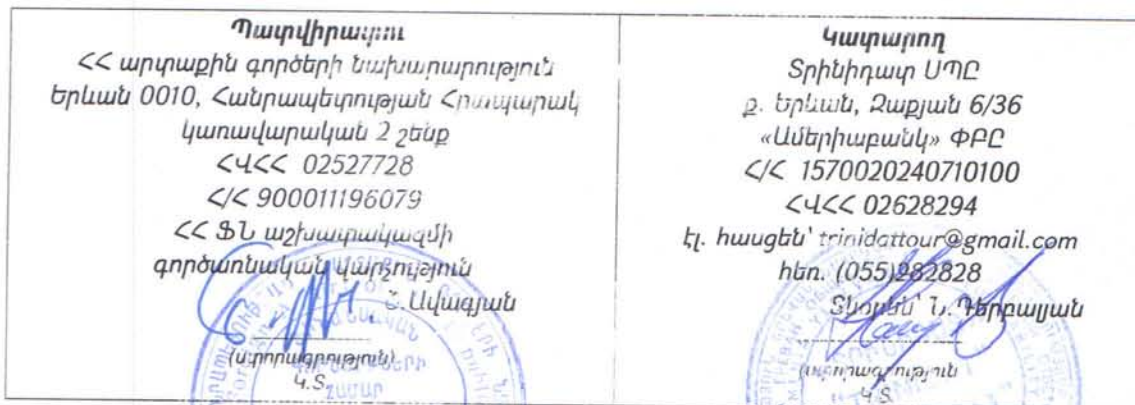 Պատվիրատու
ՀՀ արտաքին գործերի նախարարություն
Երևան 0010, Հանրապետության Հրապարակ
կառավարական 2 շենք
ՀՎՀՀ 02527728
Հ/Հ 900011196079
ՀՀ ՖՆ աշխատակազմի
գործառնական վարչություն
Ավագյան
(ստորագրություն)
Կ.Տ.
ՀԱՄԱՐ
Կատարող
Տրինիդատ ՍՊԸ
ք. Երևան, Զաքյան 6/36
«Ամերիաբանկ» ՓԲԸ
Հ/Հ 1570020240710100
ՀՎՀՀ 02628294
էլ. հասցեն՝ trinidattour@gmail.com
հեռ. (055)282828
Տնօրեն՝ Ն. Դերբալյան
(ստորագրություն)
Կ.Տ.